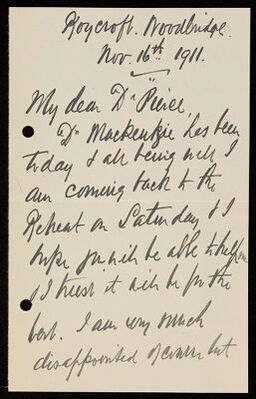 Roycroft. Woodbridge.
Nov. 16th 1911.
My dear Dr Pierce,
Dr Mackenzie has been
today & all being well I
am coming back to the
Retreat on Saturday & I
hope you will be able to help me
& I trust it will be for the
best. I am very much
disappointed of course but